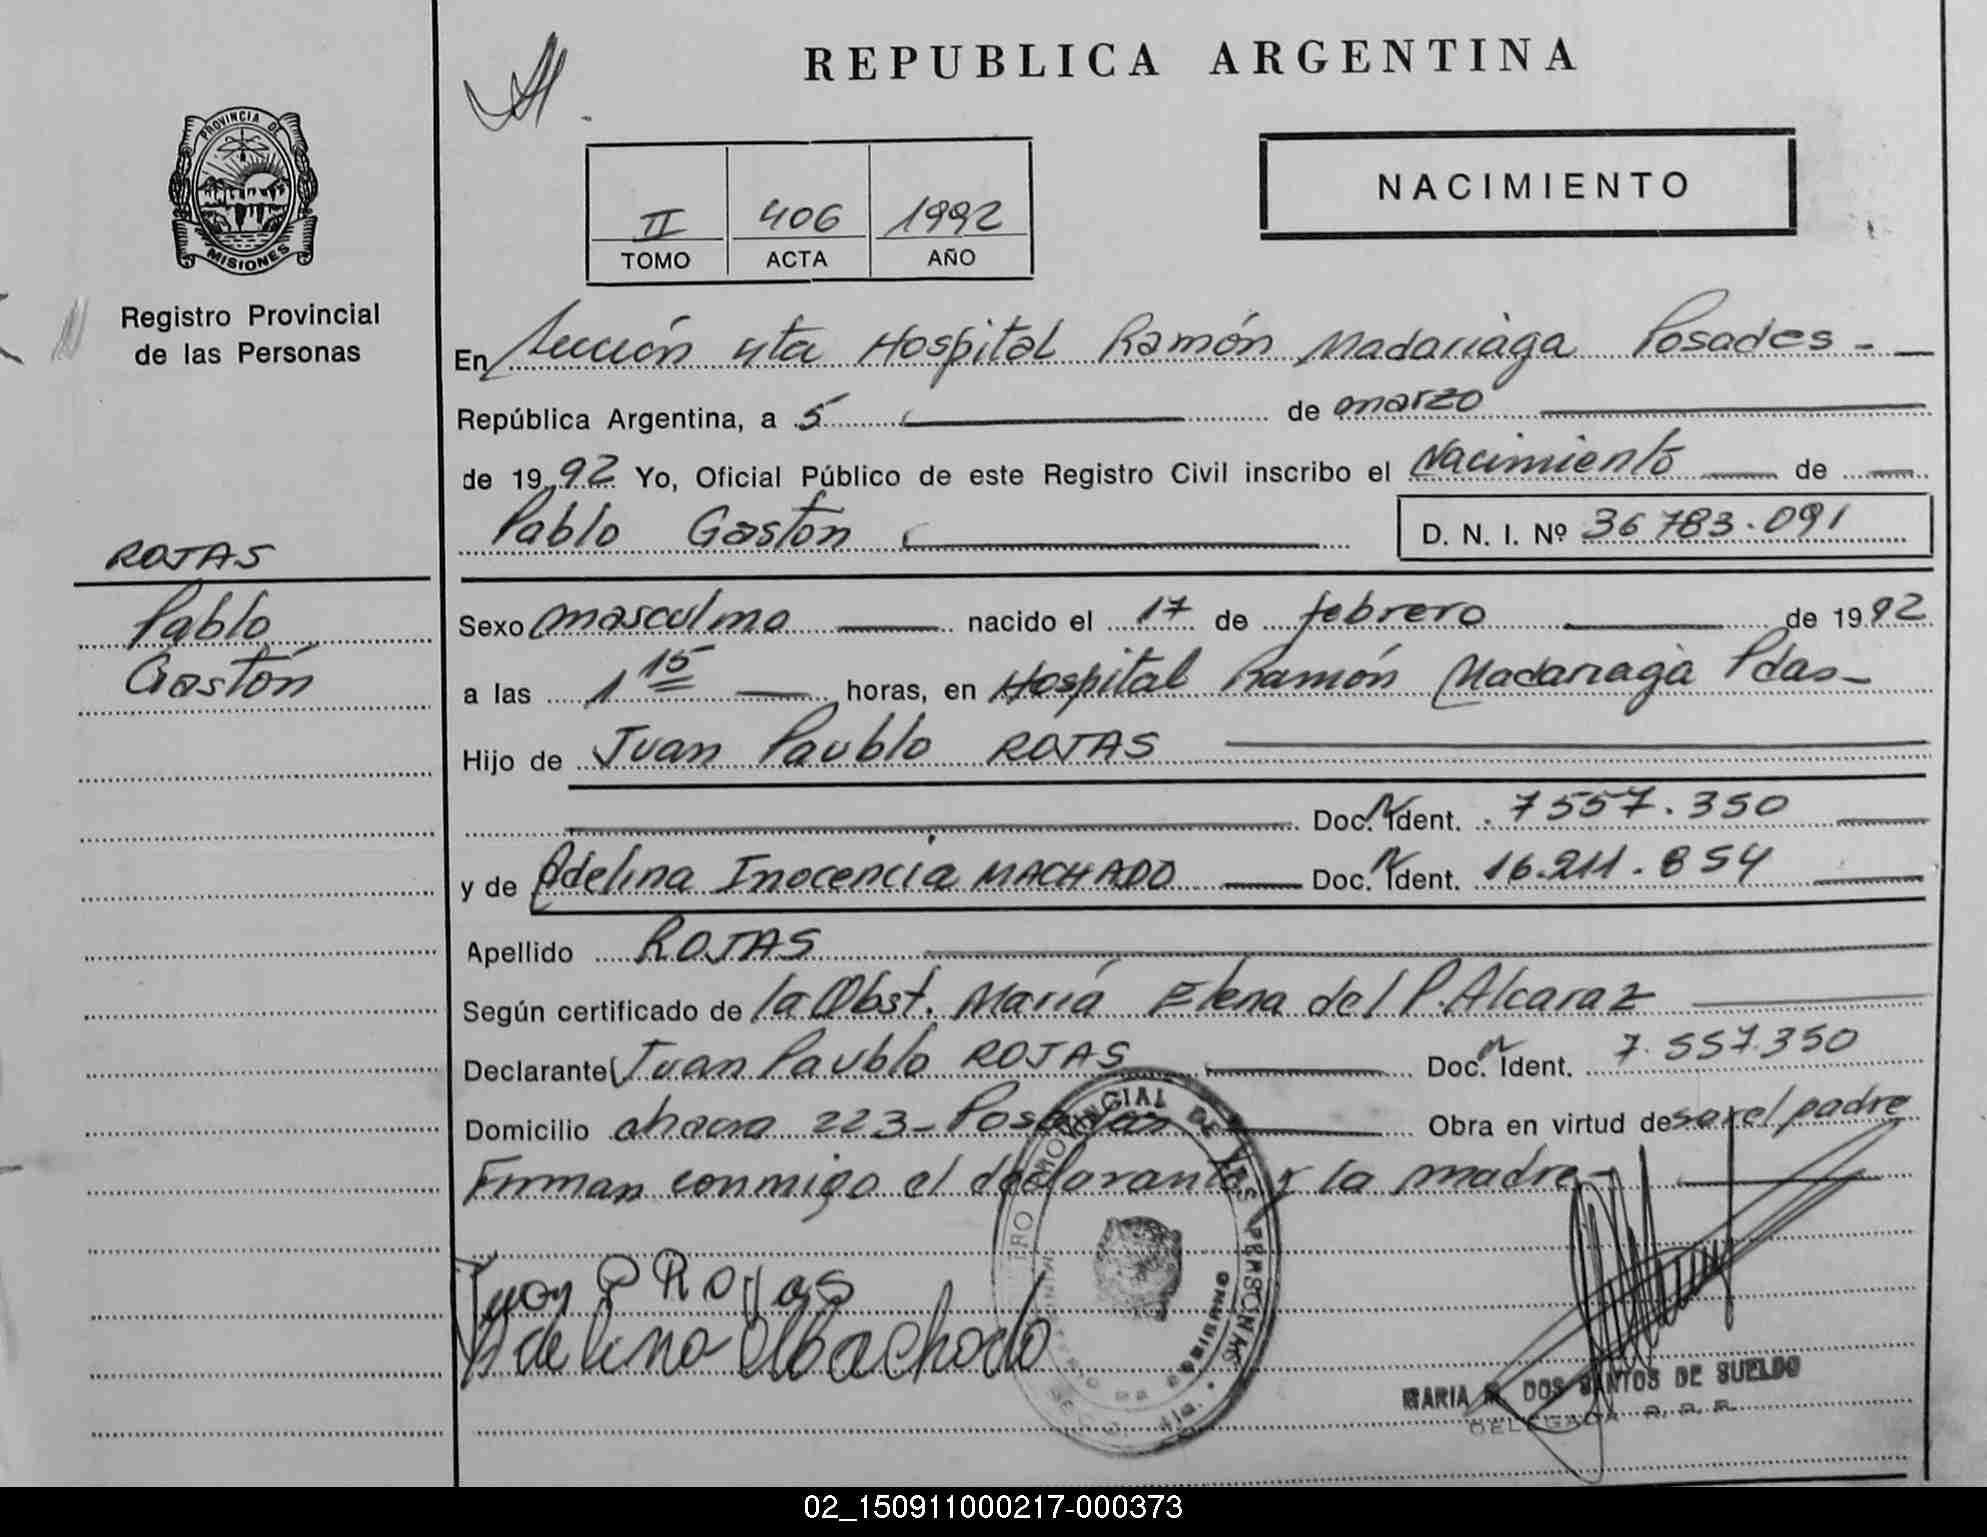 REPUBLICA ARGENTINA
PROVINCIA DE
MISIONES
Registro Provincial
de las Personas
II 406 1992
TOMO ACTA AÑO
NACIMIENTO
En Sección 4ta Hospital Ramón Madariaga Posadas -
República Argentina, a 5 de marzo
de 1992 Yo, Oficial Público de este Registro Civil inscribo el Nacimiento de
Pablo Gastón D. N. I. Nº 36783.091
ROJAS
Pablo
Gastón
Sexo masculino nacido el 17 de febrero de 1992
a las 1 15 horas, en Hospital Ramón Madariaga Pdas-
Hijo de Juan Paublo ROJAS
Doc. Ident. 7557.350
y de Adelina Inocencia MACHADO Doc. Ident. 16.211.854
Apellido ROJAS
Según certificado de la Obst. María Elena del P. Alcaraz
Declarante Juan Paublo ROJAS Doc. Ident. 7.557.350
Domicilio chacra 223- Posadas Obra en virtud de ser el padre
Firman conmigo el declarante y la madre-
Juan P Rojas
Adelina
PROVINCIAL DE LAS PERSONAS
MARIA DOS SANTOS DE SUELDO
DELEGADA R. P. P.
02_150911000217-000373